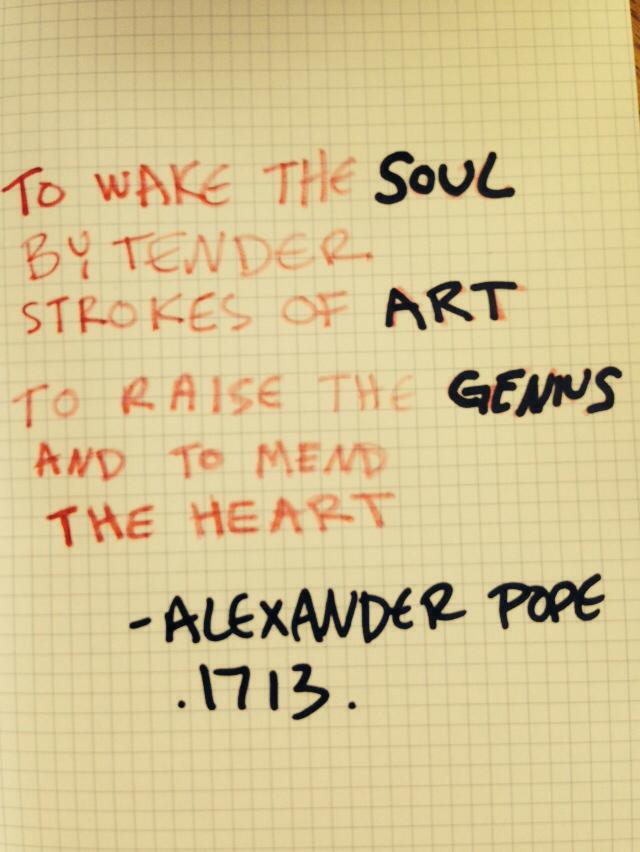 TO WAKE THE SOUL
BY TENDER
STROKES OF ART
TO RAISE THE GENIUS
AND TO MEND
THE HEART
-ALEXANDER POPE
.1713.